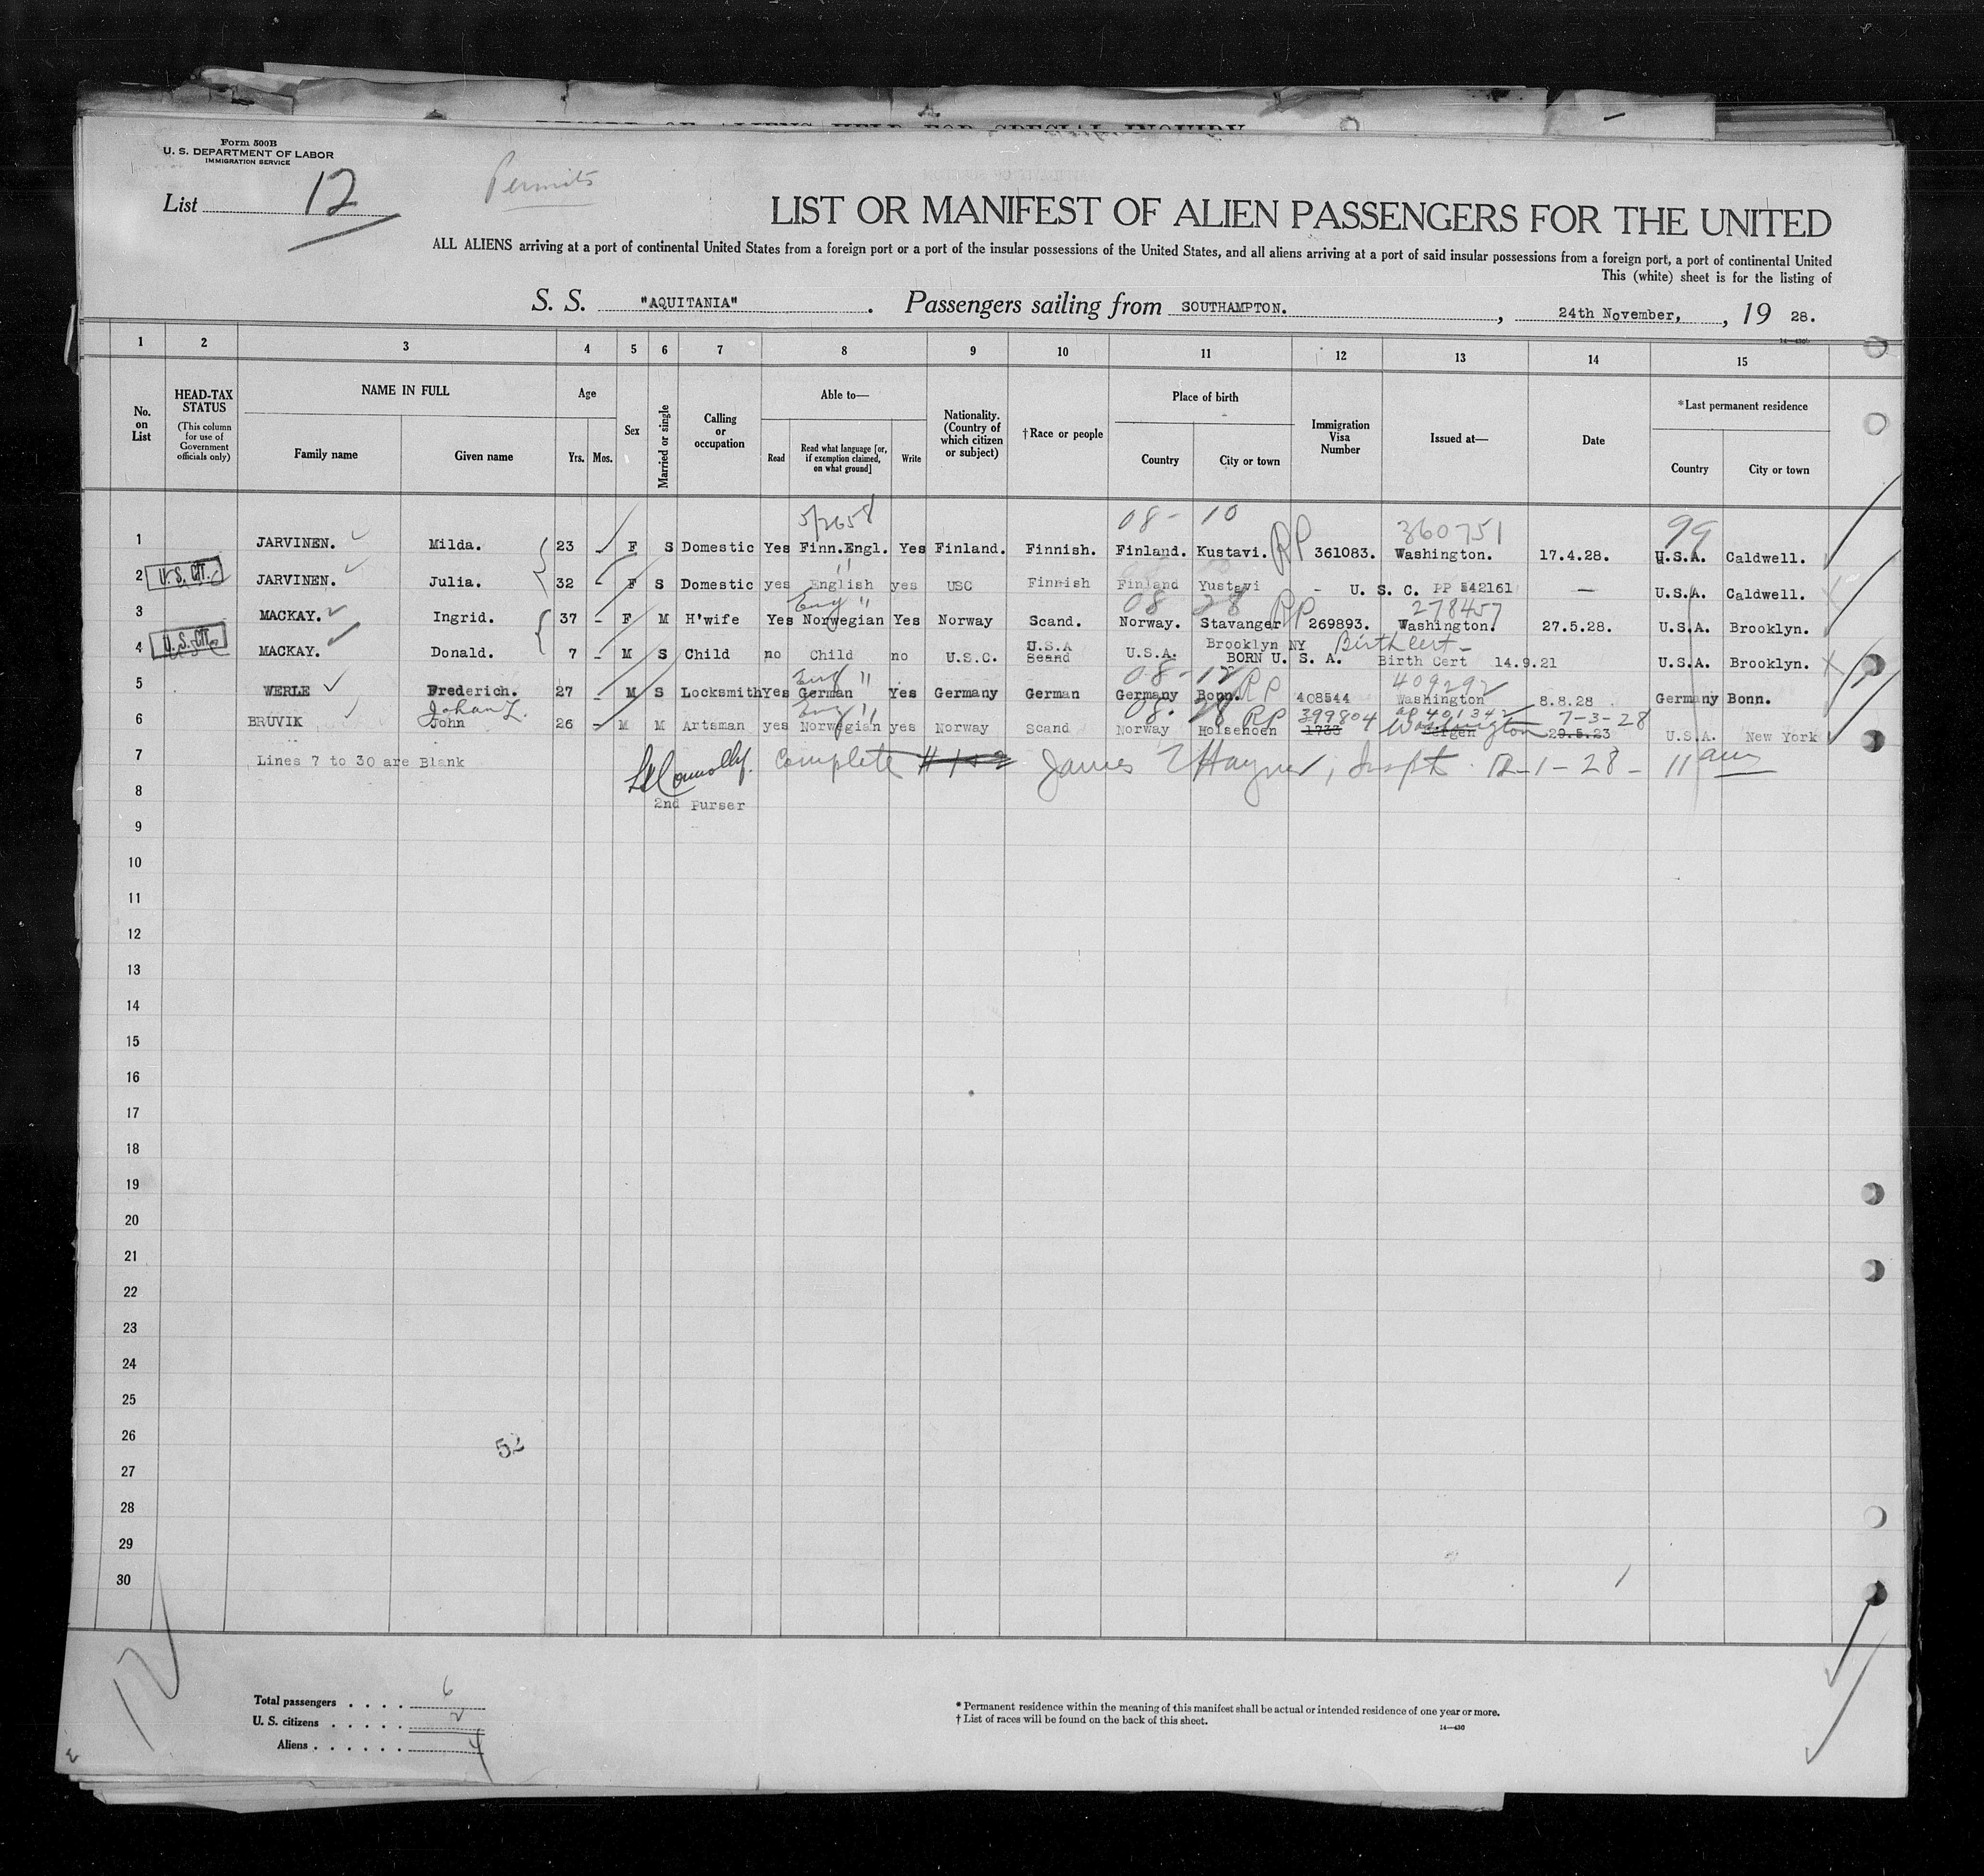 Form 500B
U. S. DEPARTMENT OF LABOR
IMMIGRATION SERVICE
List 12
Permits
LIST OR MANIFEST OF ALIEN PASSENGERS FOR THE UNITED
ALL ALIENS arriving at a port of continental United States from a foreign port or a port of the insular possessions of the United States, and all aliens arriving at a port of said insular possessions from a foreign port, a port of continental United
This (white) sheet is for the listing of
S. S. "AQUITANIA". Passengers sailing from SOUTHAMPTON., 24th November, , 19 28.
14—430
1 2 3 4 5 6 7 8 9 10 11 12 13 14 15
No. on List
HEAD-TAX STATUS
(This column for use of Government officials only)
NAME IN FULL
Family name Given name
Age
Yrs. Mos.
Sex
Married or single
Calling or occupation
Able to—
Read Read what language [or, if exemption claimed, on what ground] Write
Nationality. (Country of which citizen or subject)
†Race or people
Place of birth
Country City or town
Immigration Visa Number
Issued at—
Date
*Last permanent residence
Country City or town
5/2658 08 - 10 360751 99
1 JARVINEN. Milda. 23 - F S Domestic Yes Finn.Engl. Yes Finland. Finnish. Finland. Kustavi. RP 361083. Washington. 17.4.28. U.S.A. Caldwell.
2 U.S. CIT. JARVINEN. Julia. 32 - F S Domestic yes English yes USC Finnish Finland Yustavi - U. S. C. PP 542161 — U.S.A. Caldwell.
Eng " 08 28 278457
3 MACKAY. Ingrid. 37 - F M H'wife Yes Norwegian Yes Norway Scand. Norway. Stavanger RP 269893. Washington. 27.5.28. U.S.A. Brooklyn.
U.S.A Brooklyn NY Birth Cert -
4 U.S. CIT. MACKAY. Donald. 7 - M S Child no Child no U.S.C. Scand U.S.A. BORN U. S. A. Birth Cert 14.9.21 U.S.A. Brooklyn.
Eng " 08 - 12 409292
5 WERLE Frederich. 27 - M S Locksmith Yes German Yes Germany German Germany Bonn. RP 408544 Washington 8.8.28 Germany Bonn.
Johan L. Eng " 08. 28 RP 399804 ap 401342 Washington 7-3-28
6 BRUVIK John 26 - M M Artsman yes Norwegian yes Norway Scand Norway Holsenoen 1733 Bergen 29.5.23 U.S.A. New York
7 Lines 7 to 30 are Blank Complete James Hayner, Inspt. 12-1-28- 11 am
2nd Purser
8
9
10
11
12
13
14
15
16
17
18
19
20
21
22
23
24
25
26
52
27
28
29
30
12
Total passengers . . . . 6
U. S. citizens . . . . . 2
Aliens . . . . . . 4
* Permanent residence within the meaning of this manifest shall be actual or intended residence of one year or more.
† List of races will be found on the back of this sheet.
14—430